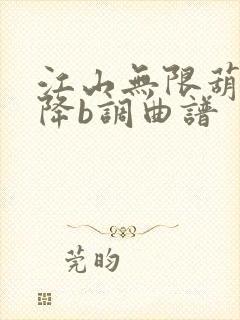 江山無限葫
降b調曲譜
莞昀